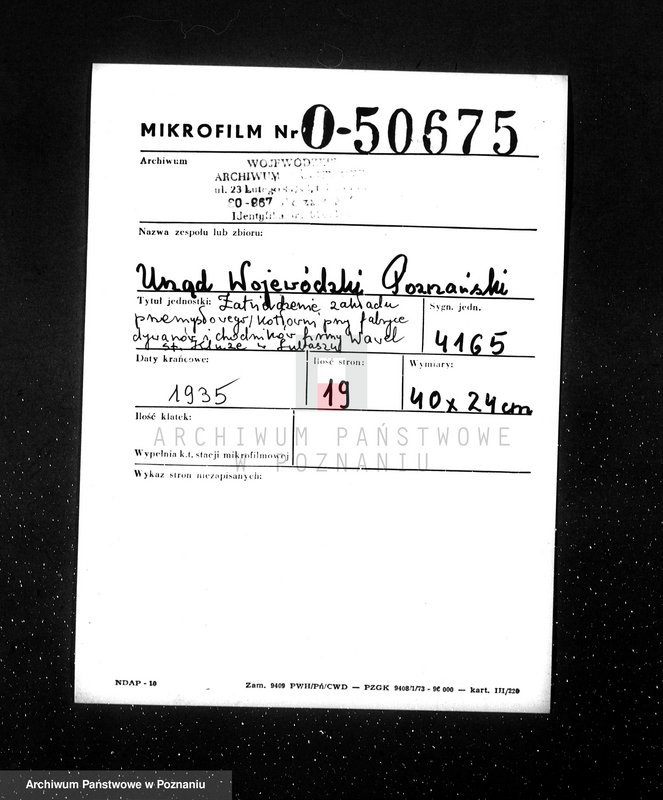 MIKROFILM Nr O-50675
Archiwum
WOJEWÓDZKIE
ARCHIWUM
ul. 23 Lutego
60-967
Identyfika
Nazwa zespołu lub zbioru:
Urząd Wojewódzki Poznański
Tytuł jednostki: Zatwierdzenie zakładu
przemysłowego/kotłowni przy fabryce
dywanów i chodników firmy Wavel
w Lubaszu
Sygn. jedn.
4165
Daty krańcowe:
1935
Ilość stron:
19
Wymiary:
40 x 24 cm
Ilość klatek:
Wypełnia k.t. stacji mikrofilmowej
Wykaz stron niezapisanych:
ARCHIWUM PAŃSTWOWE
W POZNANIU
NDAP - 10
Zam. 9409 PWH/Pń/CWD — PZGK 9408/1/73 - 90 000 — kart. III/220
Archiwum Państwowe w Poznaniu